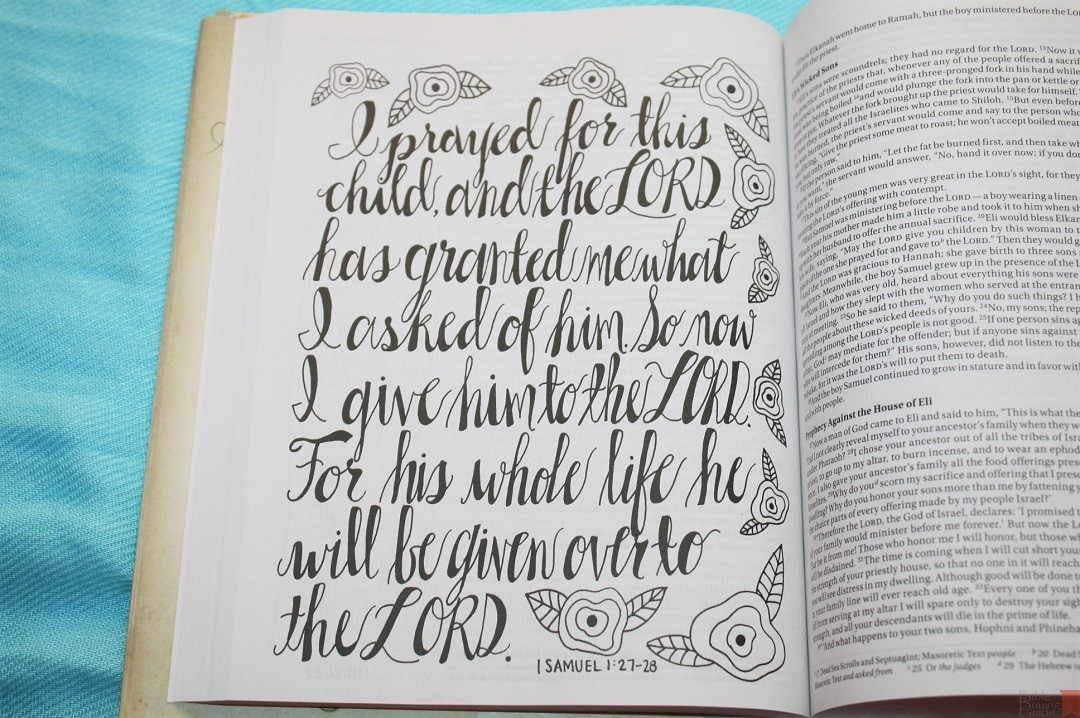 I prayed for this
child, and the LORD
has granted me what
I asked of him. So now
I give him to the LORD.
For his whole life he
will be given over to
the LORD.
1 SAMUEL 1:27-28
Elkanah went home to Ramah, but the boy ministered before the
Wicked Sons
sons were scoundrels; they had no regard for the LORD. 13Now it
of the priests that, whenever any of the people offered a
servant would come with a three-pronged fork in his hand while
was being boiled 14and would plunge the fork into the pan or kettle or
pot. Whatever the fork brought up the priest would take for himself.
they treated all the Israelites who came to Shiloh. 15But even before
burned, the priest's servant would come and say to the person who
"Give the priest some meat to roast; he won't accept boiled meat
but only raw."
the person said to him, "Let the fat be burned first, and then take
the servant would answer, "No, hand it over now; if you don
by force."
sin of the young men was very great in the LORD's sight, for they
the LORD's offering with contempt.
Samuel was ministering before the LORD — a boy wearing a linen
year his mother made him a little robe and took it to him when
with her husband to offer the annual sacrifice. 20Eli would bless
wife, saying, "May the LORD give you children by this woman to
place of the one she prayed for and gave to b the LORD." Then they would
And the LORD was gracious to Hannah; she gave birth to three sons
Meanwhile, the boy Samuel grew up in the presence of the
Now Eli, who was very old, heard about everything his sons were
and how they slept with the women who served at the
of meeting. 23So he said to them, "Why do you do such things? I
the people about these wicked deeds of yours. 24No, my sons; the
spreading among the LORD's people is not good. 25If one person sins
God c may mediate for the offender; but if anyone sins against
will intercede for them?" His sons, however, did not listen to
for it was the LORD's will to put them to death.
And the boy Samuel continued to grow in stature and in favor
and with people.
Prophecy Against the House of Eli
Now a man of God came to Eli and said to him, "This is what the
not clearly reveal myself to your ancestor's family when they
under Pharaoh? 28I chose your ancestor out of all the tribes of
to go up to my altar, to burn incense, and to wear an
I also gave your ancestor's family all the food offerings
Israelites. 29Why do you d scorn my sacrifice and offering that I
dwelling? Why do you honor your sons more than me by fattening
the choice parts of every offering made by my people Israel?'
30"Therefore the LORD, the God of Israel, declares: 'I promised
your family would minister before me forever.' But now the
be it from me! Those who honor me I will honor, but those
will be disdained. 31The time is coming when I will cut short your
the strength of your priestly house, so that no one in it will
you will see distress in my dwelling. Although good will be done
in your family line will ever reach old age. 33Every one of you
from serving at my altar I will spare only to destroy your
strength, and all your descendants will die in the prime of life.
34"'And what happens to your two sons, Hophni and
Dead Sea Scrolls and Septuagint; Masoretic Text people b 20 Dead
Masoretic Text and asked from c 25 Or the judges d 29 The Hebrew is
Bible
Buying
Guide